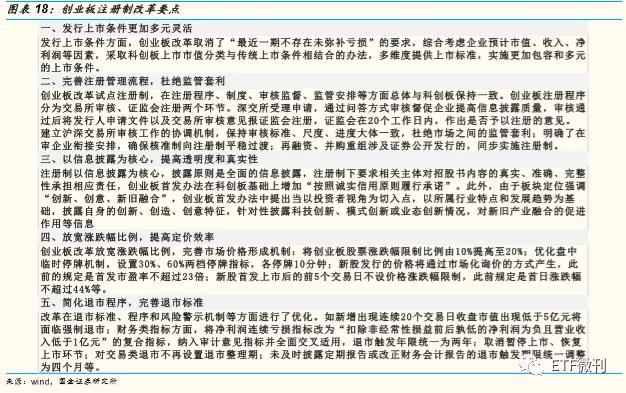 图表 18：创业板注册制改革要点
一、发行上市条件更加多元灵活
发行上市条件方面，创业板改革取消了“最近一期不存在未弥补亏损”的要求，综合考虑企业预计市值、收入、净
利润等因素，采取科创板上市市值分类与传统上市条件相结合的办法，多维度提供上市标准，实施更加包容和多元
的上市条件。
二、完善注册管理流程，杜绝监管套利
创业板改革试点注册制，在注册程序、制度、审核监督、监管安排等方面总体与科创板保持一致。创业板注册程序
分为交易所审核、证监会注册两个环节。深交所受理申请，通过问答方式审核督促企业提高信息披露质量，审核通
过后将发行人申请文件以及交易所审核意见报证监会注册，证监会在20个工作日内，作出是否予以注册的意见。
建立沪深交易所审核工作的协调机制，保持审核标准、尺度、进度大体一致，杜绝市场之间的监管套利；明确了在
审企业衔接安排，确保核准制向注册制平稳过渡；再融资、并购重组涉及证券公开发行的，同步实施注册制。
三、以信息披露为核心，提高透明度和真实性
注册制以信息披露为核心，披露原则是全面的信息披露，注册制下要求相关主体对招股书内容的真实、准确、完整
性承担相应责任，创业板首发办法在科创板基础上增加“按照诚实信用原则履行承诺”。此外，由于板块定位强调
“创新、创意、新旧融合”，创业板首发办法中提出当以投资者视角为切入点，以所属行业特点和发展趋势为基
础，披露自身的创新、创造、创意特征，针对性披露科技创新、模式创新或业态创新情况，对新旧产业融合的促进
作用等信息
四、放宽涨跌幅比例，提高定价效率
创业板改革放宽涨跌幅比例，完善市场价格形成机制：将创业板股票涨跌幅限制比例由10%提高至20%；优化盘中
临时停牌机制，设置30%、60%两档停牌指标，各停牌10分钟；新股发行的价格将通过市场化询价的方式产生，此
前的规定是首发市盈率不超过23倍；新股首发上市后的前5个交易日不设价格涨跌幅限制，此前规定是首日涨跌幅
不超过44%等。
五、简化退市程序，完善退市标准
改革在退市标准、程序和风险警示机制等方面进行了优化。如新增出现连续20个交易日收盘市值出现低于5亿元将
面临强制退市；财务类指标方面，将净利润连续亏损指标改为“扣除非经常性损益前后孰低的净利润为负且营业收
入低于1亿元”的复合指标，纳入审计意见指标并全面交叉适用，退市触发年限统一为两年；取消暂停上市、恢复
上市环节；对交易类退市不再设置退市整理期；未及时披露定期报告或改正财务会计报告的退市触发期限统一调整
为四个月等。
来源：wind，国金证券研究所
ETF微刊